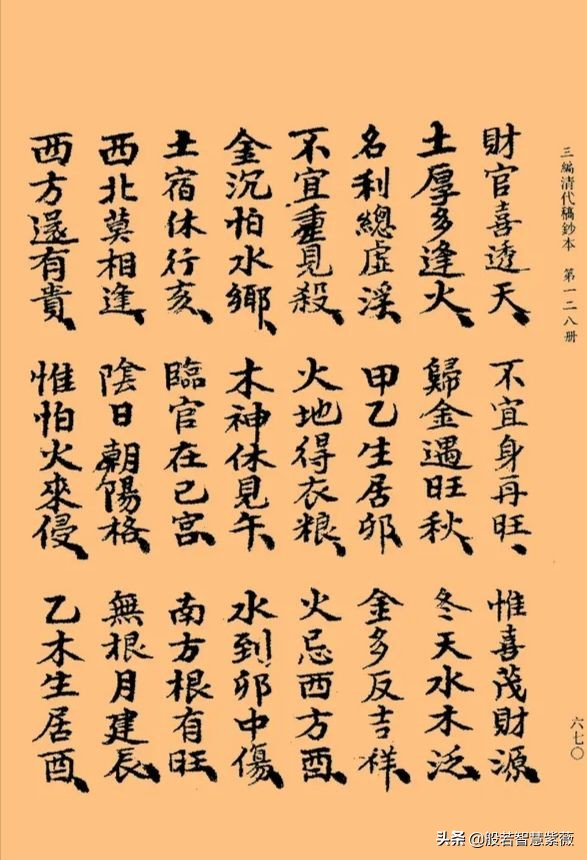 三編清代稿鈔本 第一二八册
財官喜透天、不宜身再旺、惟喜茂財源、
土厚多逢火、歸金遇旺秋、冬天水木泛、
名利總虛浮、甲乙生居卯、金多反吉祥、
不宜重見殺、火地得衣粮、火忌西方酉、
金沉怕水鄉、木神休見午、水到卯中傷、
土宿休行亥、臨官在己宮、南方根有旺、
西北莫相逢、陰日朝陽格、無根月建辰、
西方還有貴、惟怕火來侵、乙木生居酉、
六七〇
头条 @般若智慧紫薇